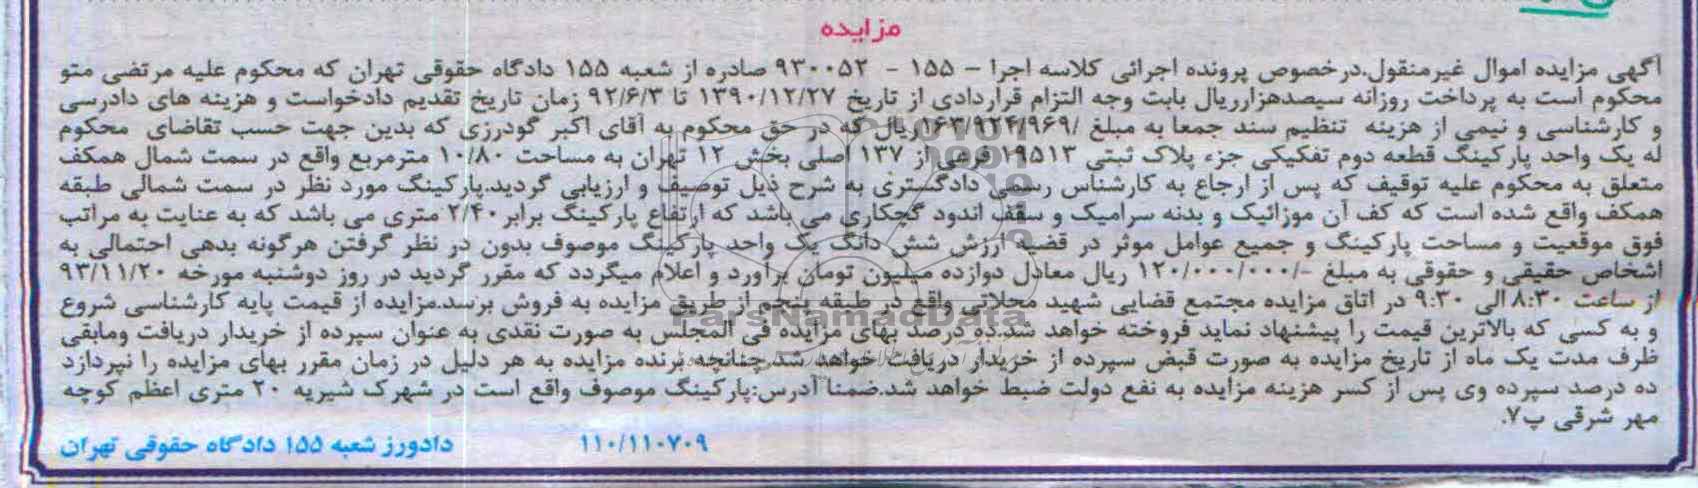 مزایده
آگهی مزایده اموال غیرمنقول.درخصوص پرونده اجرائی کلاسه اجرا – ۱۵۵ – ۹۳۰۰۵۲ صادره از شعبه ۱۵۵ دادگاه حقوقی تهران که محکوم علیه مرتضی متو
محکوم است به پرداخت روزانه سیصدهزارریال بابت وجه التزام قراردادی از تاریخ ۱۳۹۰/۱۲/۲۷ تا ۹۲/۶/۳ زمان تاریخ تقدیم دادخواست و هزینه های دادرسی
و کارشناسی و نیمی از هزینه تنظیم سند جمعا به مبلغ /۱۶۳/۹۲۴/۹۶۹ریال که در حق محکوم به آقای اکبر گودرزی که بدین جهت حسب تقاضای محکوم
له یک واحد پارکینگ قطعه دوم تفکیکی جزء پلاک ثبتی ۱۹۵۱۳ فرعی از ۱۳۷ اصلی بخش ۱۲ تهران به مساحت ۱۰/۸۰ مترمربع واقع در سمت شمال همکف
متعلق به محکوم علیه توقیف که پس از ارجاع به کارشناس رسمی دادگستری به شرح ذیل توصیف و ارزیابی گردید.پارکینگ مورد نظر در سمت شمالی طبقه
همکف واقع شده است که کف آن موزائیک و بدنه سرامیک و سقف اندود گچکاری می باشد که ارتفاع پارکینگ برابر ۲/۴۰ متری می باشد که به عنایت به مراتب
فوق موقعیت و مساحت پارکینگ و جمیع عوامل موثر در قضیه ارزش شش دانگ یک واحد پارکینگ موصوف بدون در نظر گرفتن هرگونه بدهی احتمالی به
اشخاص حقیقی و حقوقی به مبلغ -/۱۲۰/۰۰۰/۰۰۰ ریال معادل دوازده میلیون تومان برآورد و اعلام میگردد که مقرر گردید در روز دوشنبه مورخه ۹۳/۱۱/۲۰
از ساعت ۸:۳۰الی ۹:۳۰ در اتاق مزایده مجتمع قضایی شهید محلاتی واقع در طبقه پنجم از طریق مزایده به فروش برسد.مزایده از قیمت پایه کارشناسی شروع
و به کسی که بالاترین قیمت را پیشنهاد نماید فروخته خواهد شد.ده درصد بهای مزایده فی المجلس به صورت نقدی به عنوان سپرده از خریدار دریافت ومابقی
ظرف مدت یک ماه از تاریخ مزایده به صورت قبض سپرده از خریدار دریافت خواهد شد.چنانچه برنده مزایده به هر دلیل در زمان مقرر بهای مزایده را نپردازد
ده درصد سپرده وی پس از کسر هزینه مزایده به نفع دولت ضبط خواهد شد.ضمنا آدرس:پارکینگ موصوف واقع است در شهرک شیریه ۲۰ متری اعظم کوچه
مهر شرقی پ۷.
۱۱۰/۱۱۰۷۰۹ دادورز شعبه ۱۵۵ دادگاه حقوقی تهران
ParsNamadData